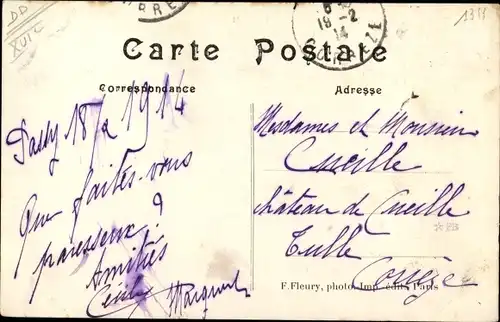 DD
XVIC
1311
18 -2
14
Carte Postale
Correspondance
Adresse
Passy 18/2 1914
Que faites-vous
paresseux ?
Amitiés
Mesdames et Monsieur
Cueille
château de Cueille
Tulle
Corrèze
F. Fleury, photo. Imp. édit. Paris